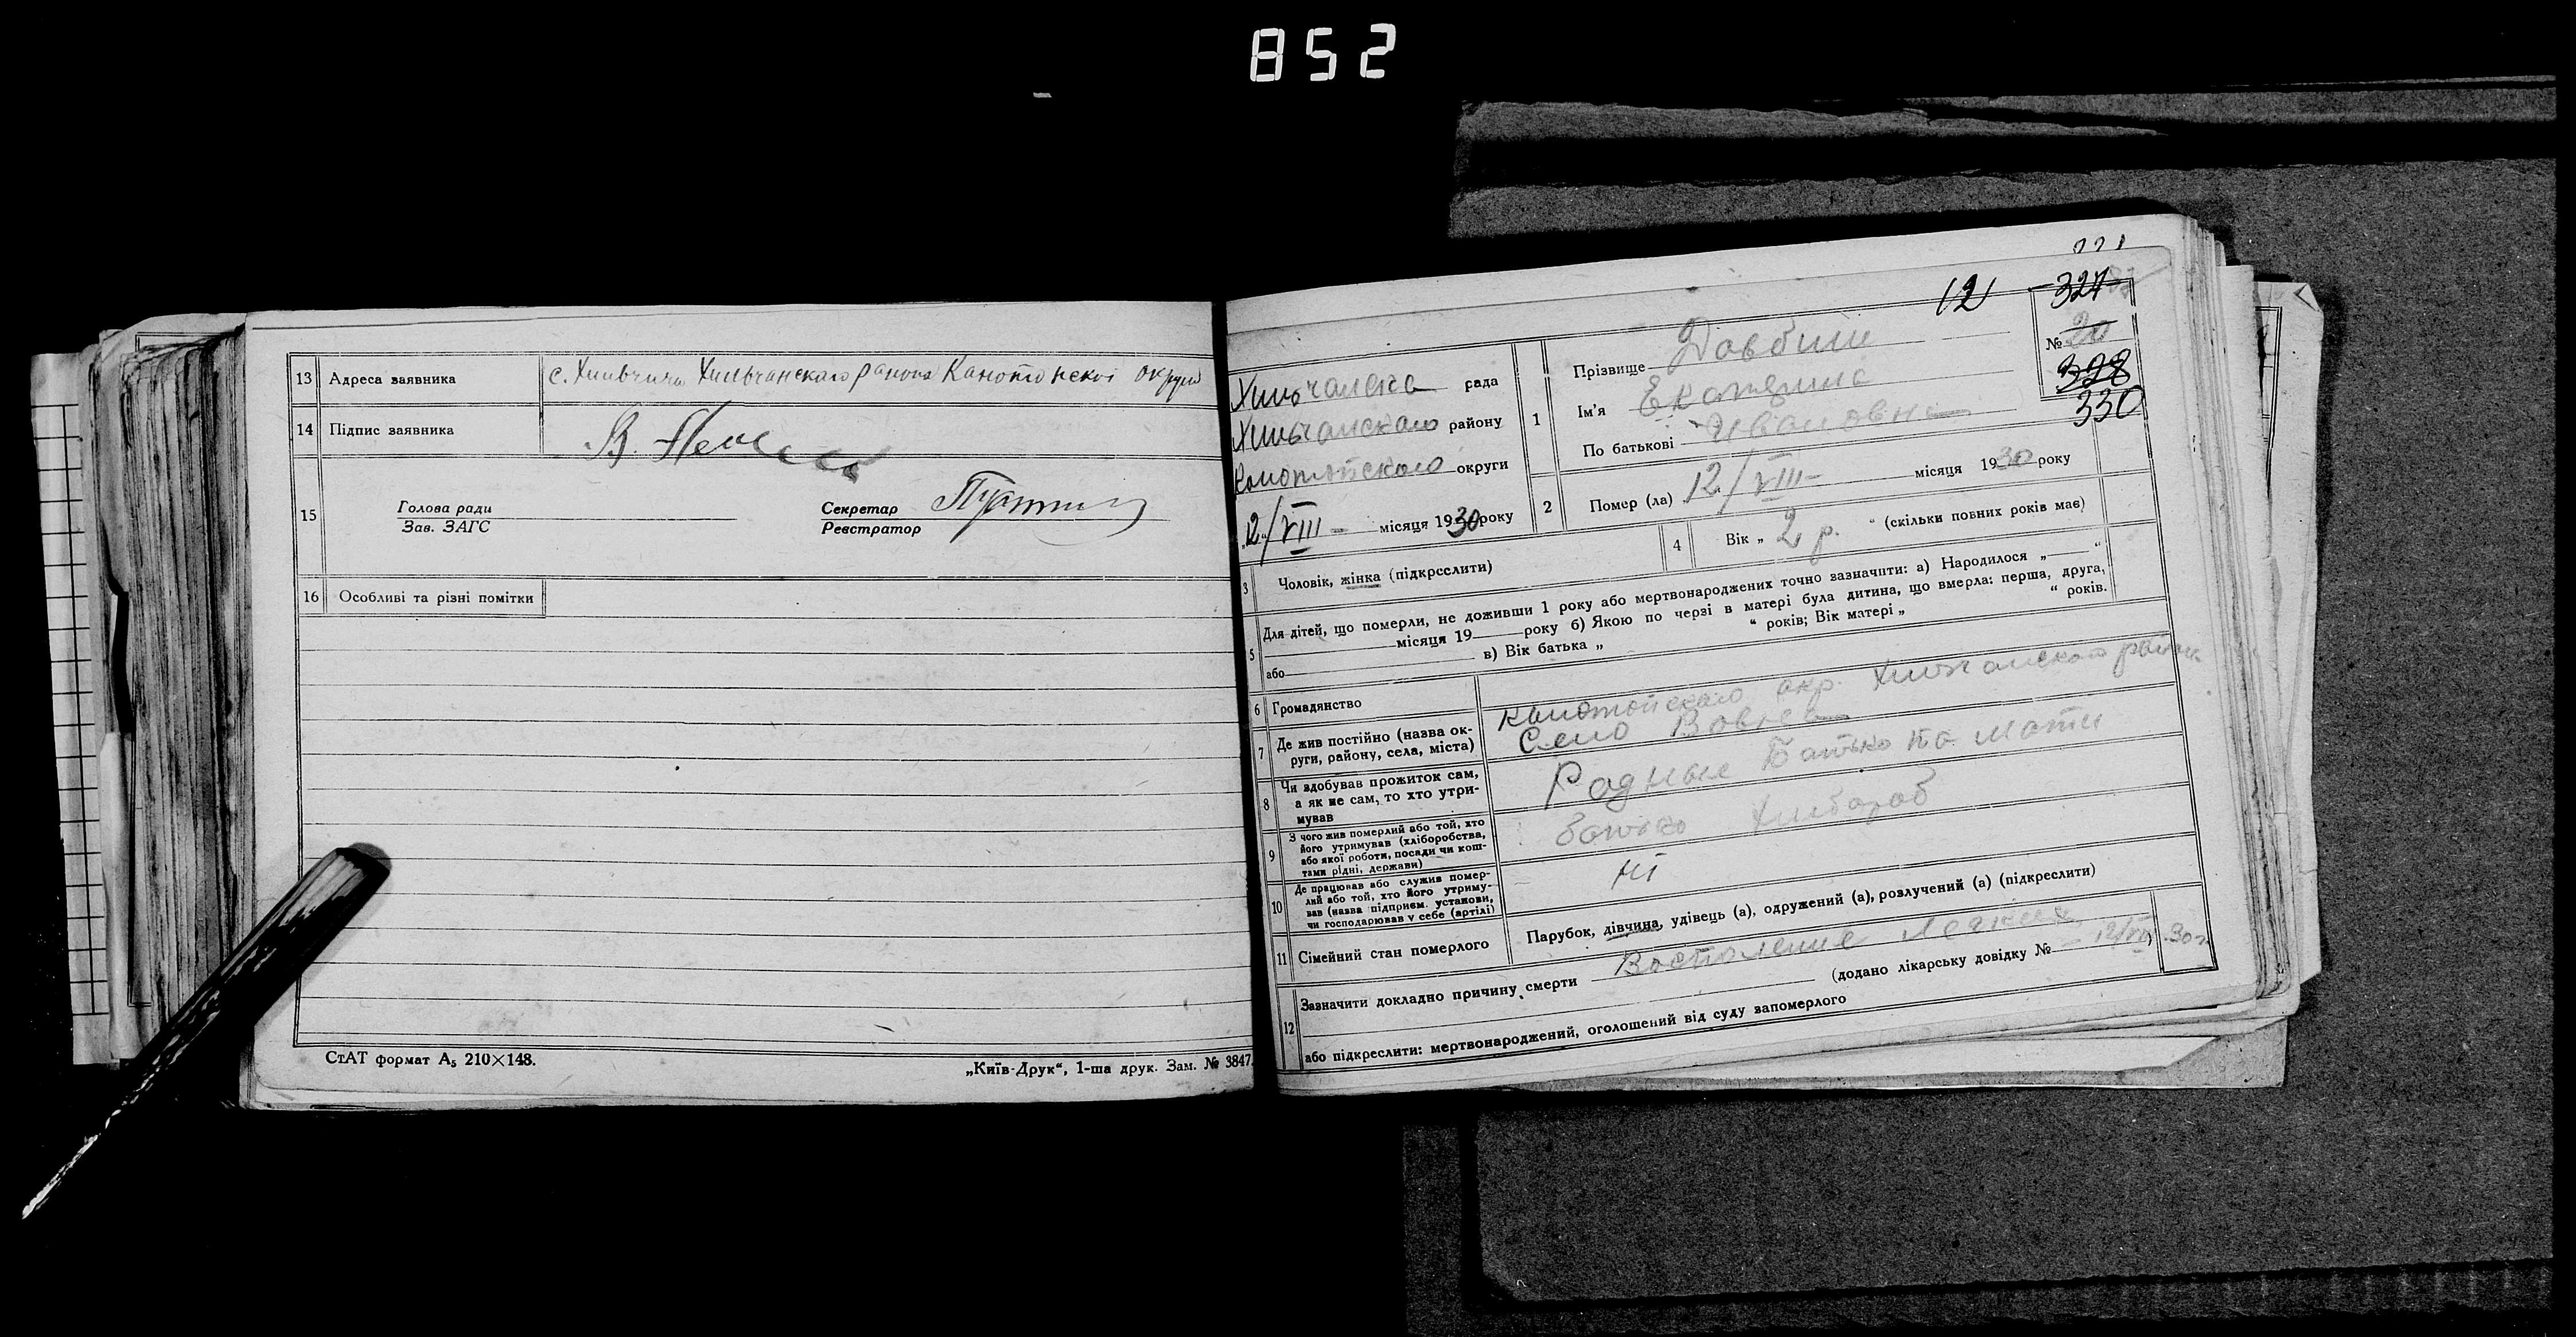 852
13 Адреса заявника с. Хмильчина Хмильчанскаго раиона Канотопскоі округи
14 Підпис заявника В.
15 Голова ради
Зав. ЗАГС
Секретар
Реєстратор
16 Особливі та різні помітки
СтАТ формат А5 210×148.
„Київ-Друк“, 1-ша друк. Зам. № 3847.
12
324
№ 20
328
330
Хмильчанска рада
Хмильчанскаго району
Конотопского округи
„12“/VIII – місяця 1930 року
1 Прізвище Довбиш
Ім'я Екатерина
По батькові Ивановна
2 Помер (ла) 12/VIII – місяця 1930 року
3 Чоловік, жінка (підкреслити)
4 Вік „ 2 р. “ (скільки повних років має)
5 Для дітей, що померли, не доживши 1 року або мертвонароджених точно зазначити: а) Народилося „ “
місяця 19 року б) Якою по черзі в матері була дитина, що вмерла: перша, друга,
або в) Вік батька „ “ років; Вік матері „ “ років.
6 Громадянство
7 Де жив постійно (назва округи, району, села, міста)
Канотопскаго окр. Хмильчанскаго раиона
Село
8 Чи здобував прожиток сам,
а як не сам, то хто утримував
Родные Батько та мати
9 З чого жив померлий або той, хто
його утримував (хліборобства,
або якої роботи, посади чи коштами рідні, держави)
Батько Хлибороб
10 Де працював або служив померлий або той, хто його утримував (назва підприєм. установи,
чи господарював у себе (артілі)
Ні
11 Сімейний стан померлого
Парубок, дівчина, удівець (а), одружений (а), розлучений (а) (підкреслити)
12 Зазначити докладно причину смерти Воспаление Легких
(додано лікарську довідку № – 12/VIII 30 г.
або підкреслити: мертвонароджений, оголошений від суду запомерлого